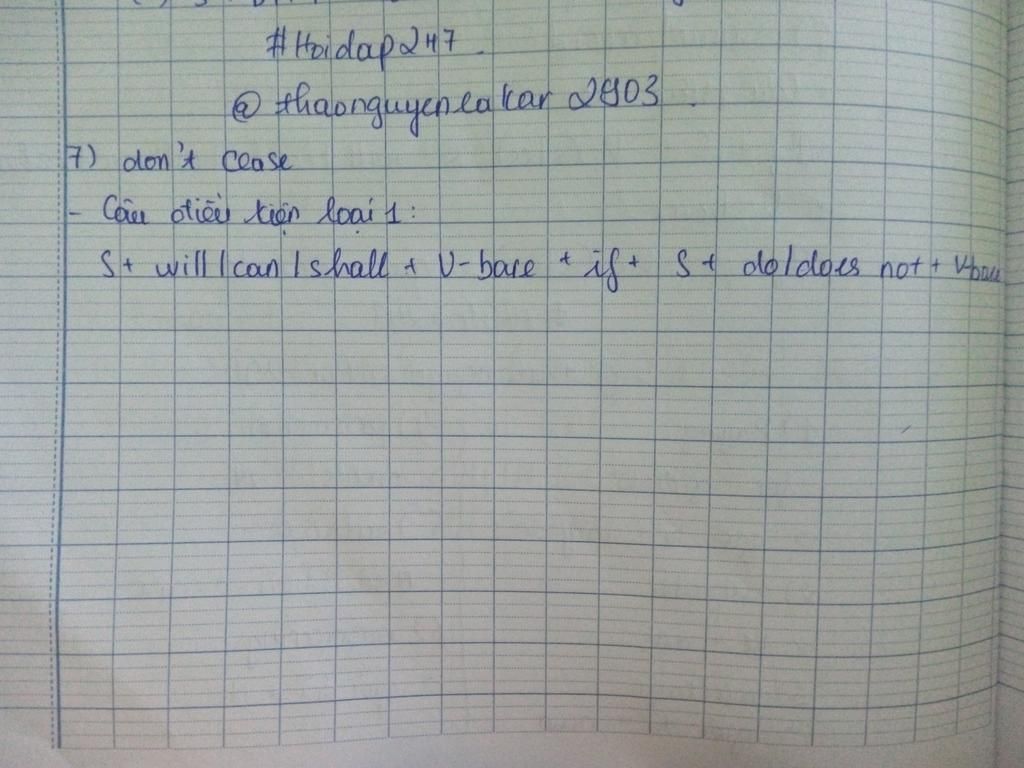 #Hoidap247
@thaonguyeneakar2903
7) don't cease
- Câu điều kiện loại 1:
S+ will/can/shall + V-bare + if + S+ do/does not + V-bare